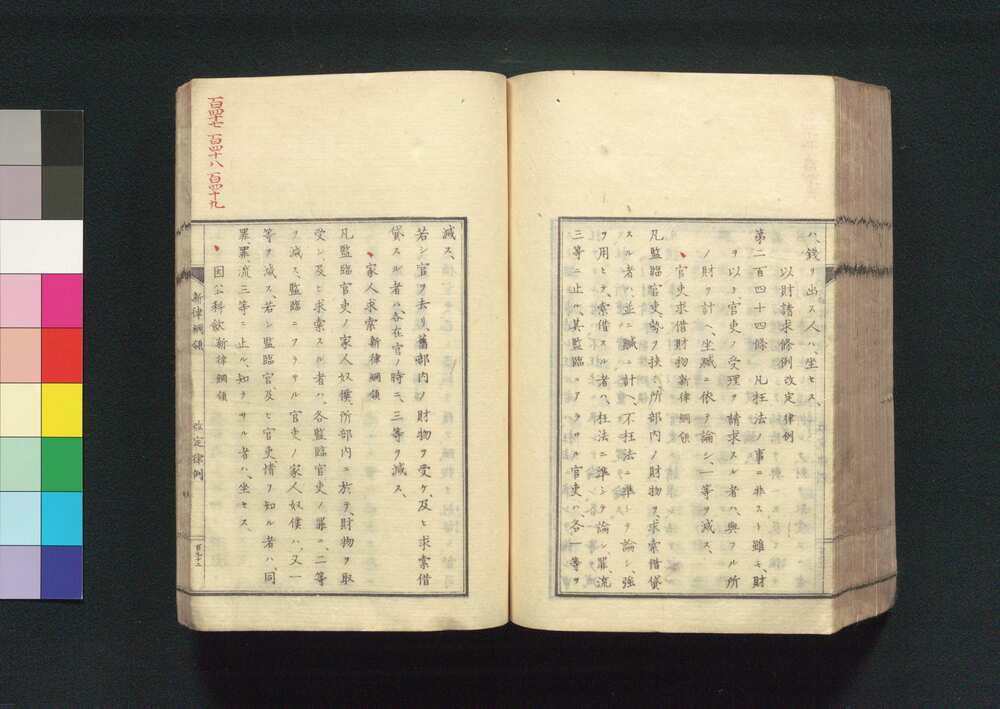 ハ、錢ヲ出ス人ハ、坐セス、
以財請求條例 改定律例
第二百四十四條 凡枉法ノ事ニ非スト雖モ、財
ヲ以テ官吏ノ受理ヲ請求スル者ハ、與フル所
ノ財ヲ計ヘ、坐贓ニ依テ論シ、一等ヲ減ス、
官吏求借財物 新律綱領
凡監臨官吏、勢ヲ挾ミ、所部内ノ財物ヲ、求索借貸
スル者ハ、並ニ贓ニ計ヘ、不枉法ニ準シテ論シ、強
テ用ヒテ、索借スル者ハ、枉法ニ準シテ論シ、罪流
三等ニ止ル、其監臨ニアラサル官吏ハ、各一等ヲ
減ス、
若シ官ヲ去リ、舊部内ノ財物ヲ受ケ、及ヒ求索借
貸スル者ハ、各在官ノ時ニ、三等ヲ減ス、
家人求索 新律綱領
凡監臨官吏ノ家人奴僕、所部内ニ於テ、財物ヲ取
受シ、及ヒ求索スル者ハ、各監臨官吏ノ罪ニ、二等
ヲ減ス、監臨ニアラサル官吏ノ家人奴僕ハ、又一
等ヲ減ス、若シ監臨官、及ヒ官吏情ヲ知ル者ハ、同
罪、罪、流三等ニ止ル、知ラサル者ハ、坐セス、
因公科斂 新律綱領
新律綱領 改定律例
百四十七 百四十八 百四十九